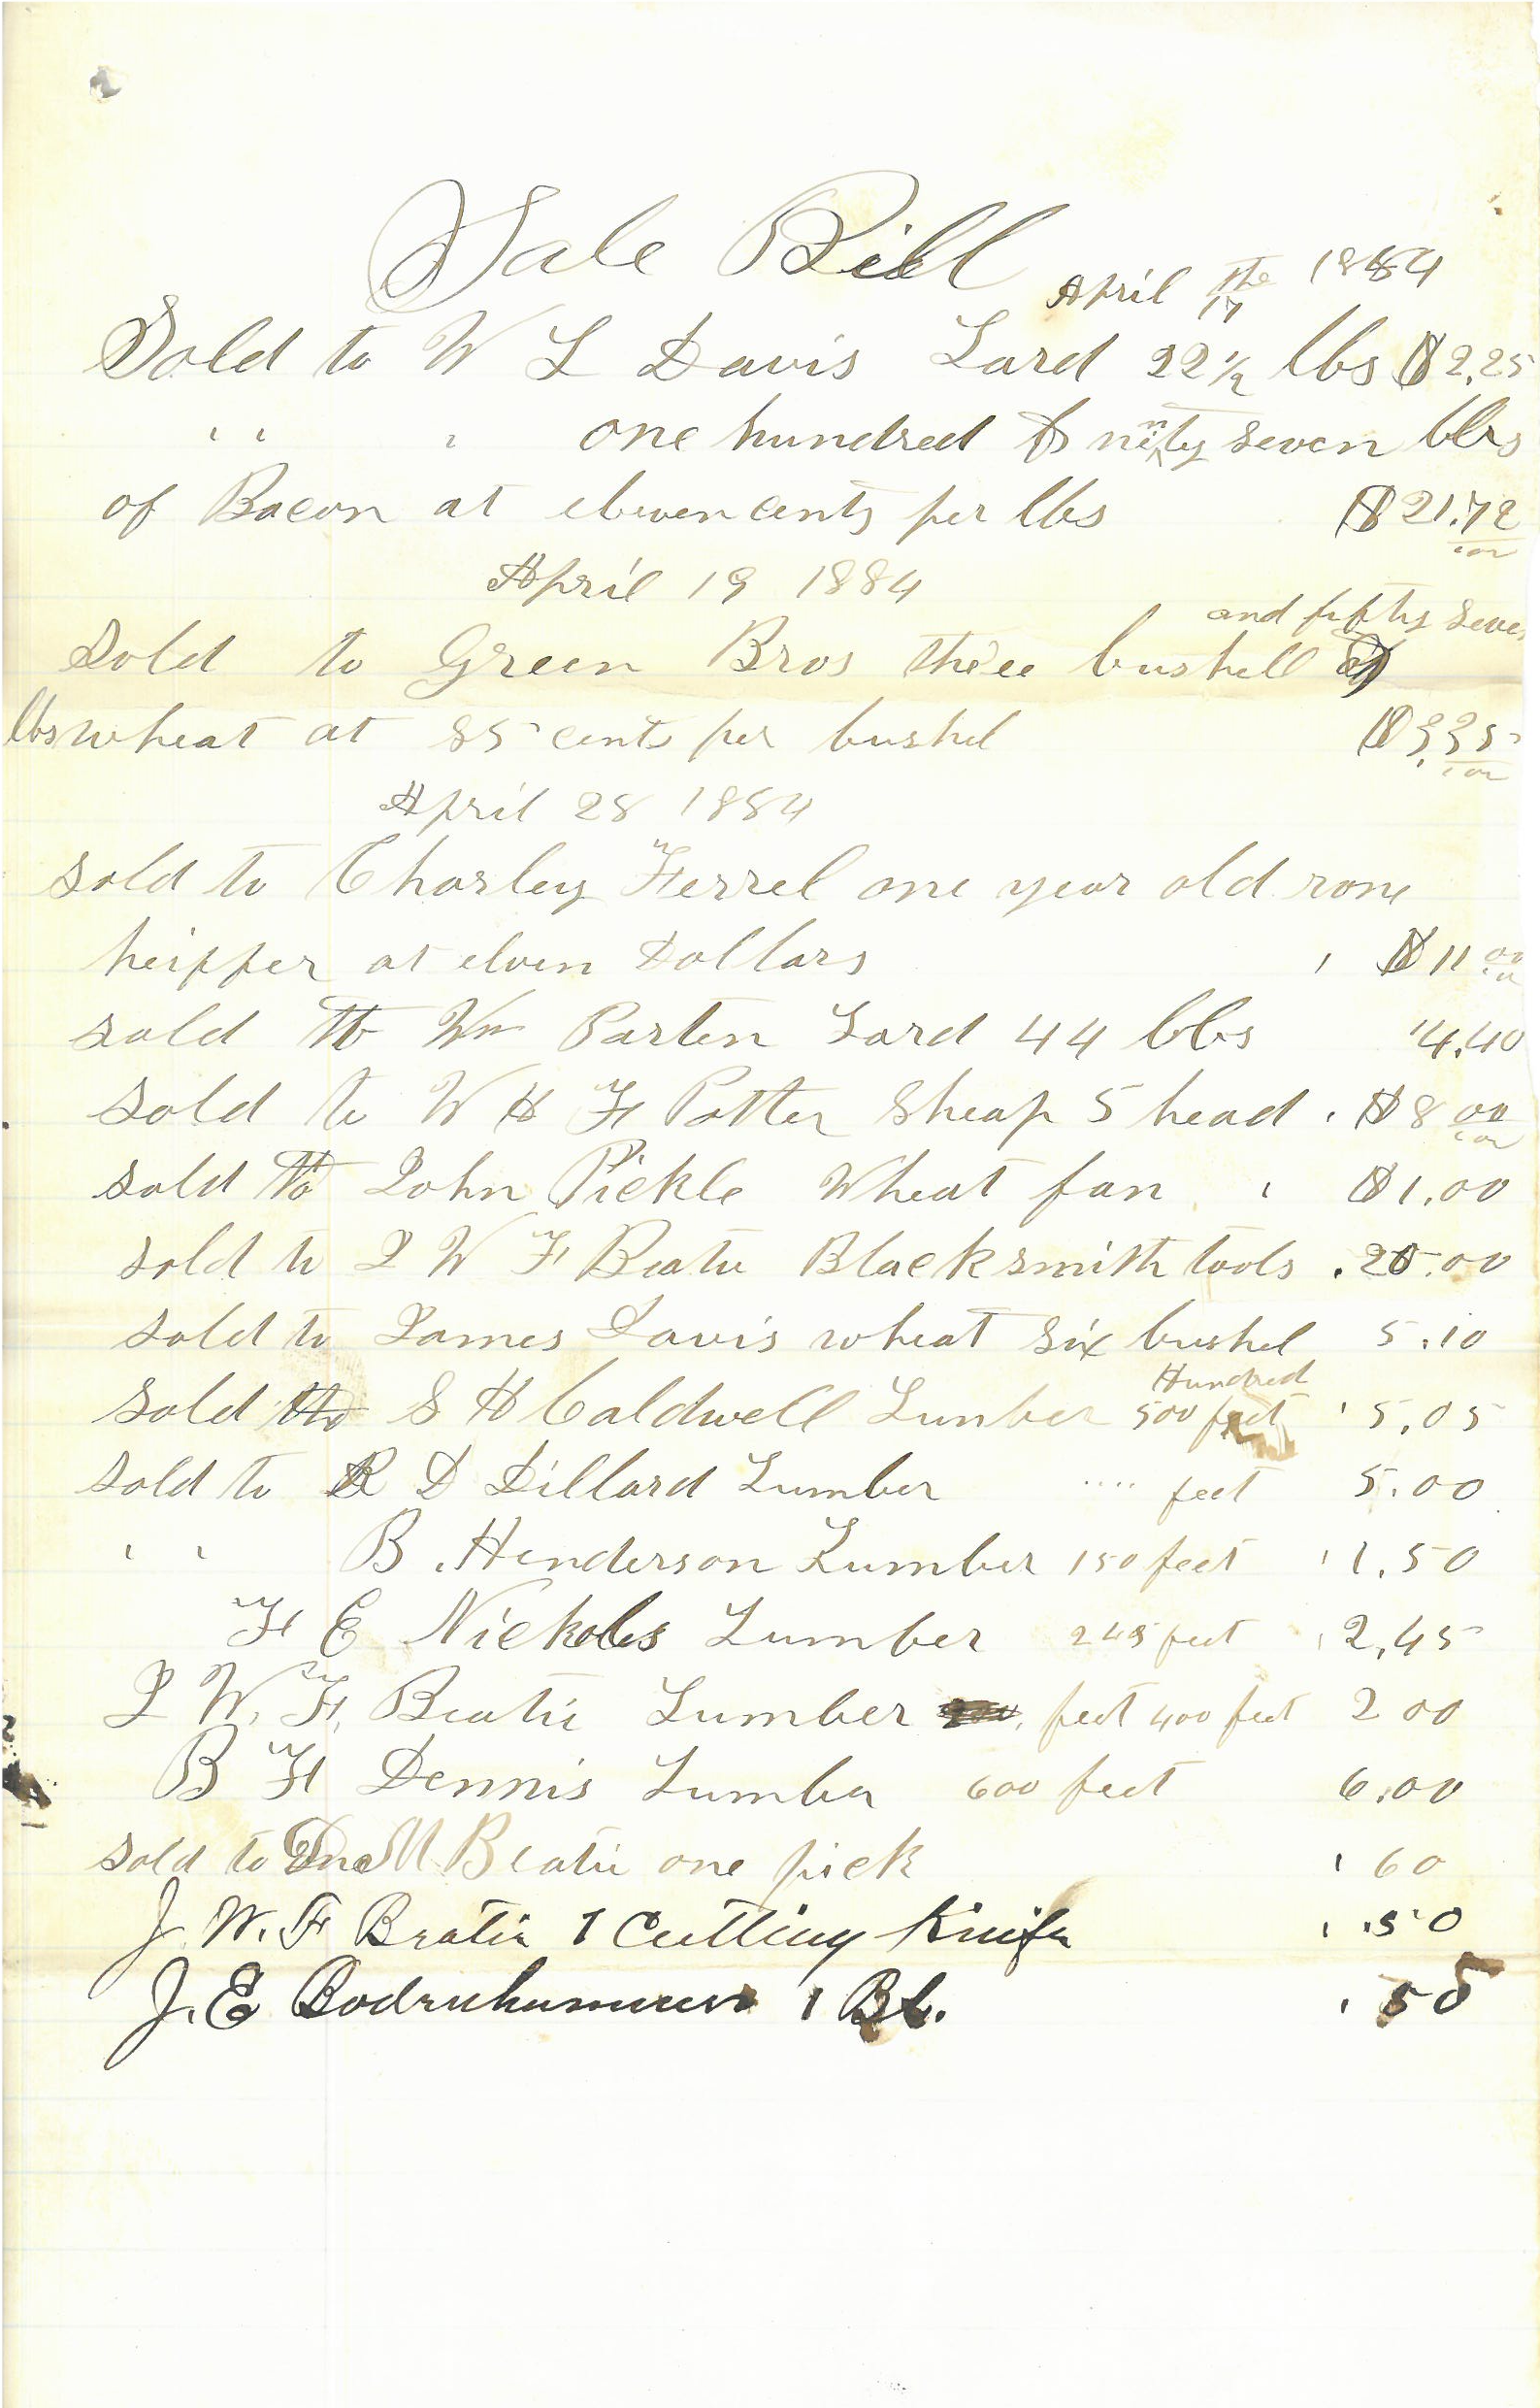 Sale Bill
April the 17 1884
Sold to W L Davis Lard 22 1/2 lbs $2.25
" " one hundred & ninty seven lbs
of Bacon at eleven cents per lbs $21.72
April 19 1884
and fifty seven
Sold to Green Bros three bushell
lbs wheat at 85 cents per bushel $3.35
April 28 1884
sold to Charley Ferrel one year old rone
heipper at elven Dollars $11 00
sold to Wm Parten Lard 44 lbs 4.40
sold to W H F Potter Sheap 5 head $8 00
sold to John Pickle Wheat fan $1.00
sold to J W F Beatie Blacksmith tools .00
sold to James Davis wheat six bushel 5.10
Hundred
sold to S H Caldwell Lumber 500 feet 5.05
sold to R D Dillard Lumber " " feet 5.00
" " B. Henderson Lumber 150 feet 1.50
F E Nickols Lumber 245 feet 2.45
J W. F. Beatie Lumber feet 400 feet 2 00
B F Dennis Lumber 600 feet 6.00
sold to M Beatie one pick 60
J. W. F Beatie 1 Cutting Knife .50
J. E 1 50